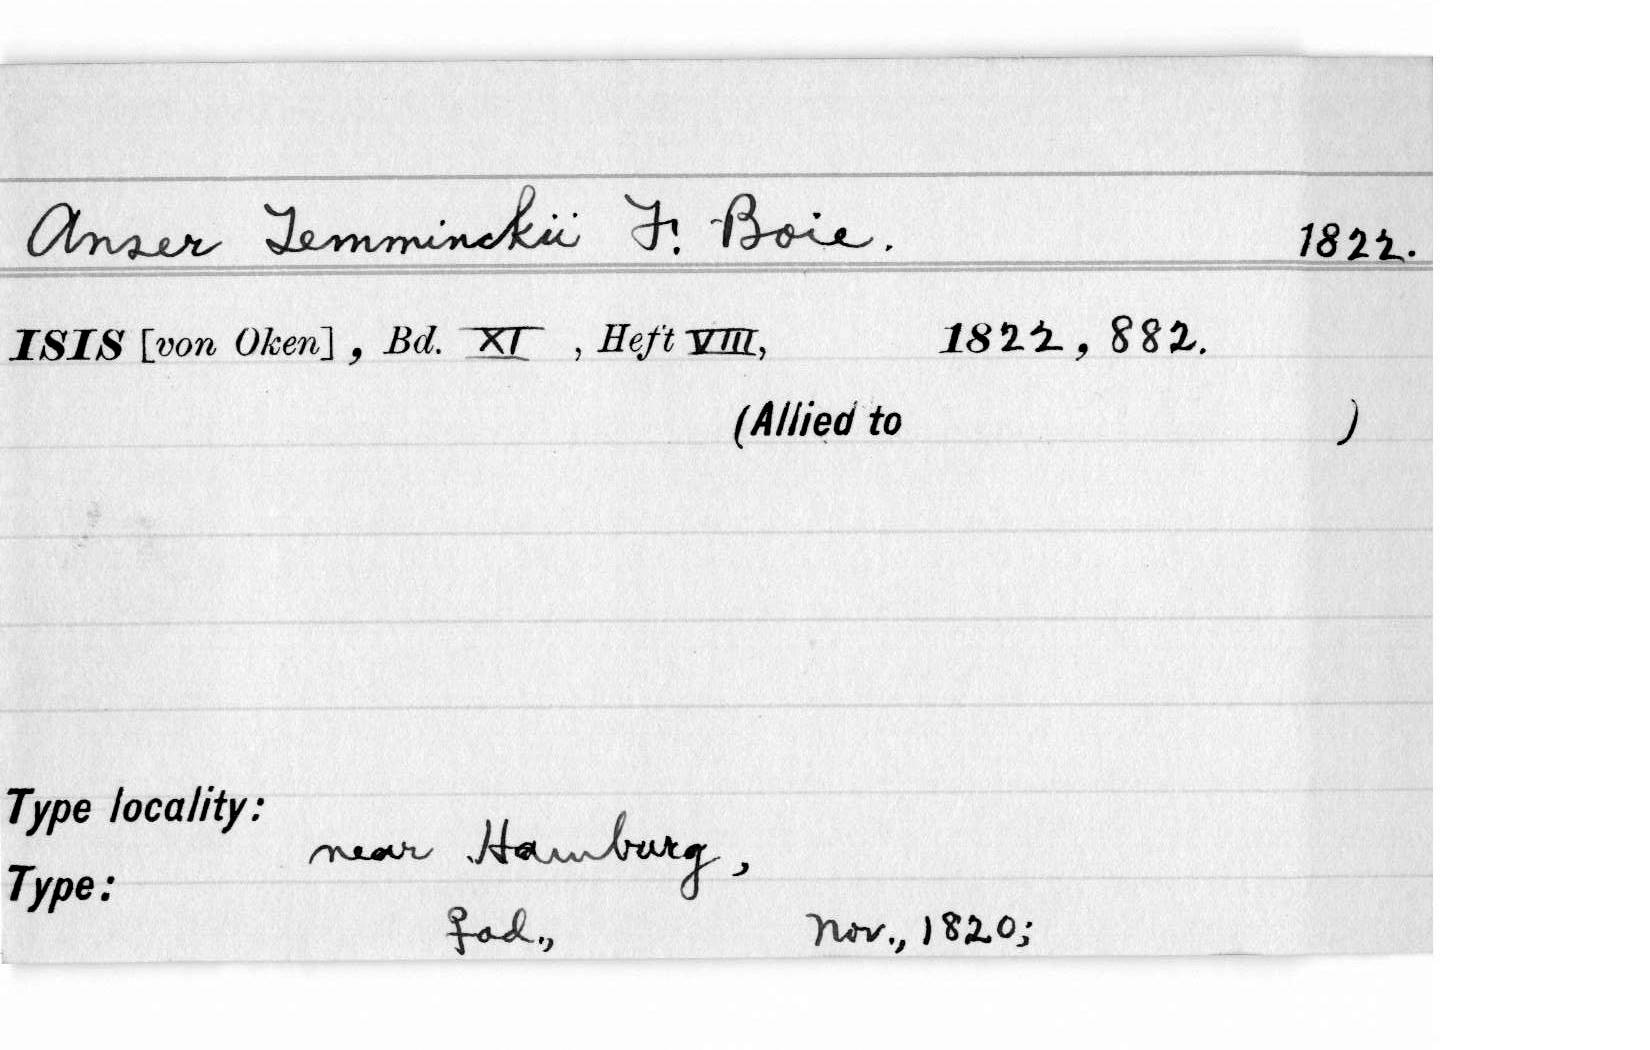 Anser Temminckii F. Boie. 1822.
ISIS [von Oken], Bd. XI, Heft VIII, 1822, 882.
(Allied to )
Type locality:
near Hamburg,
Type:
♀ad., Nov., 1820;